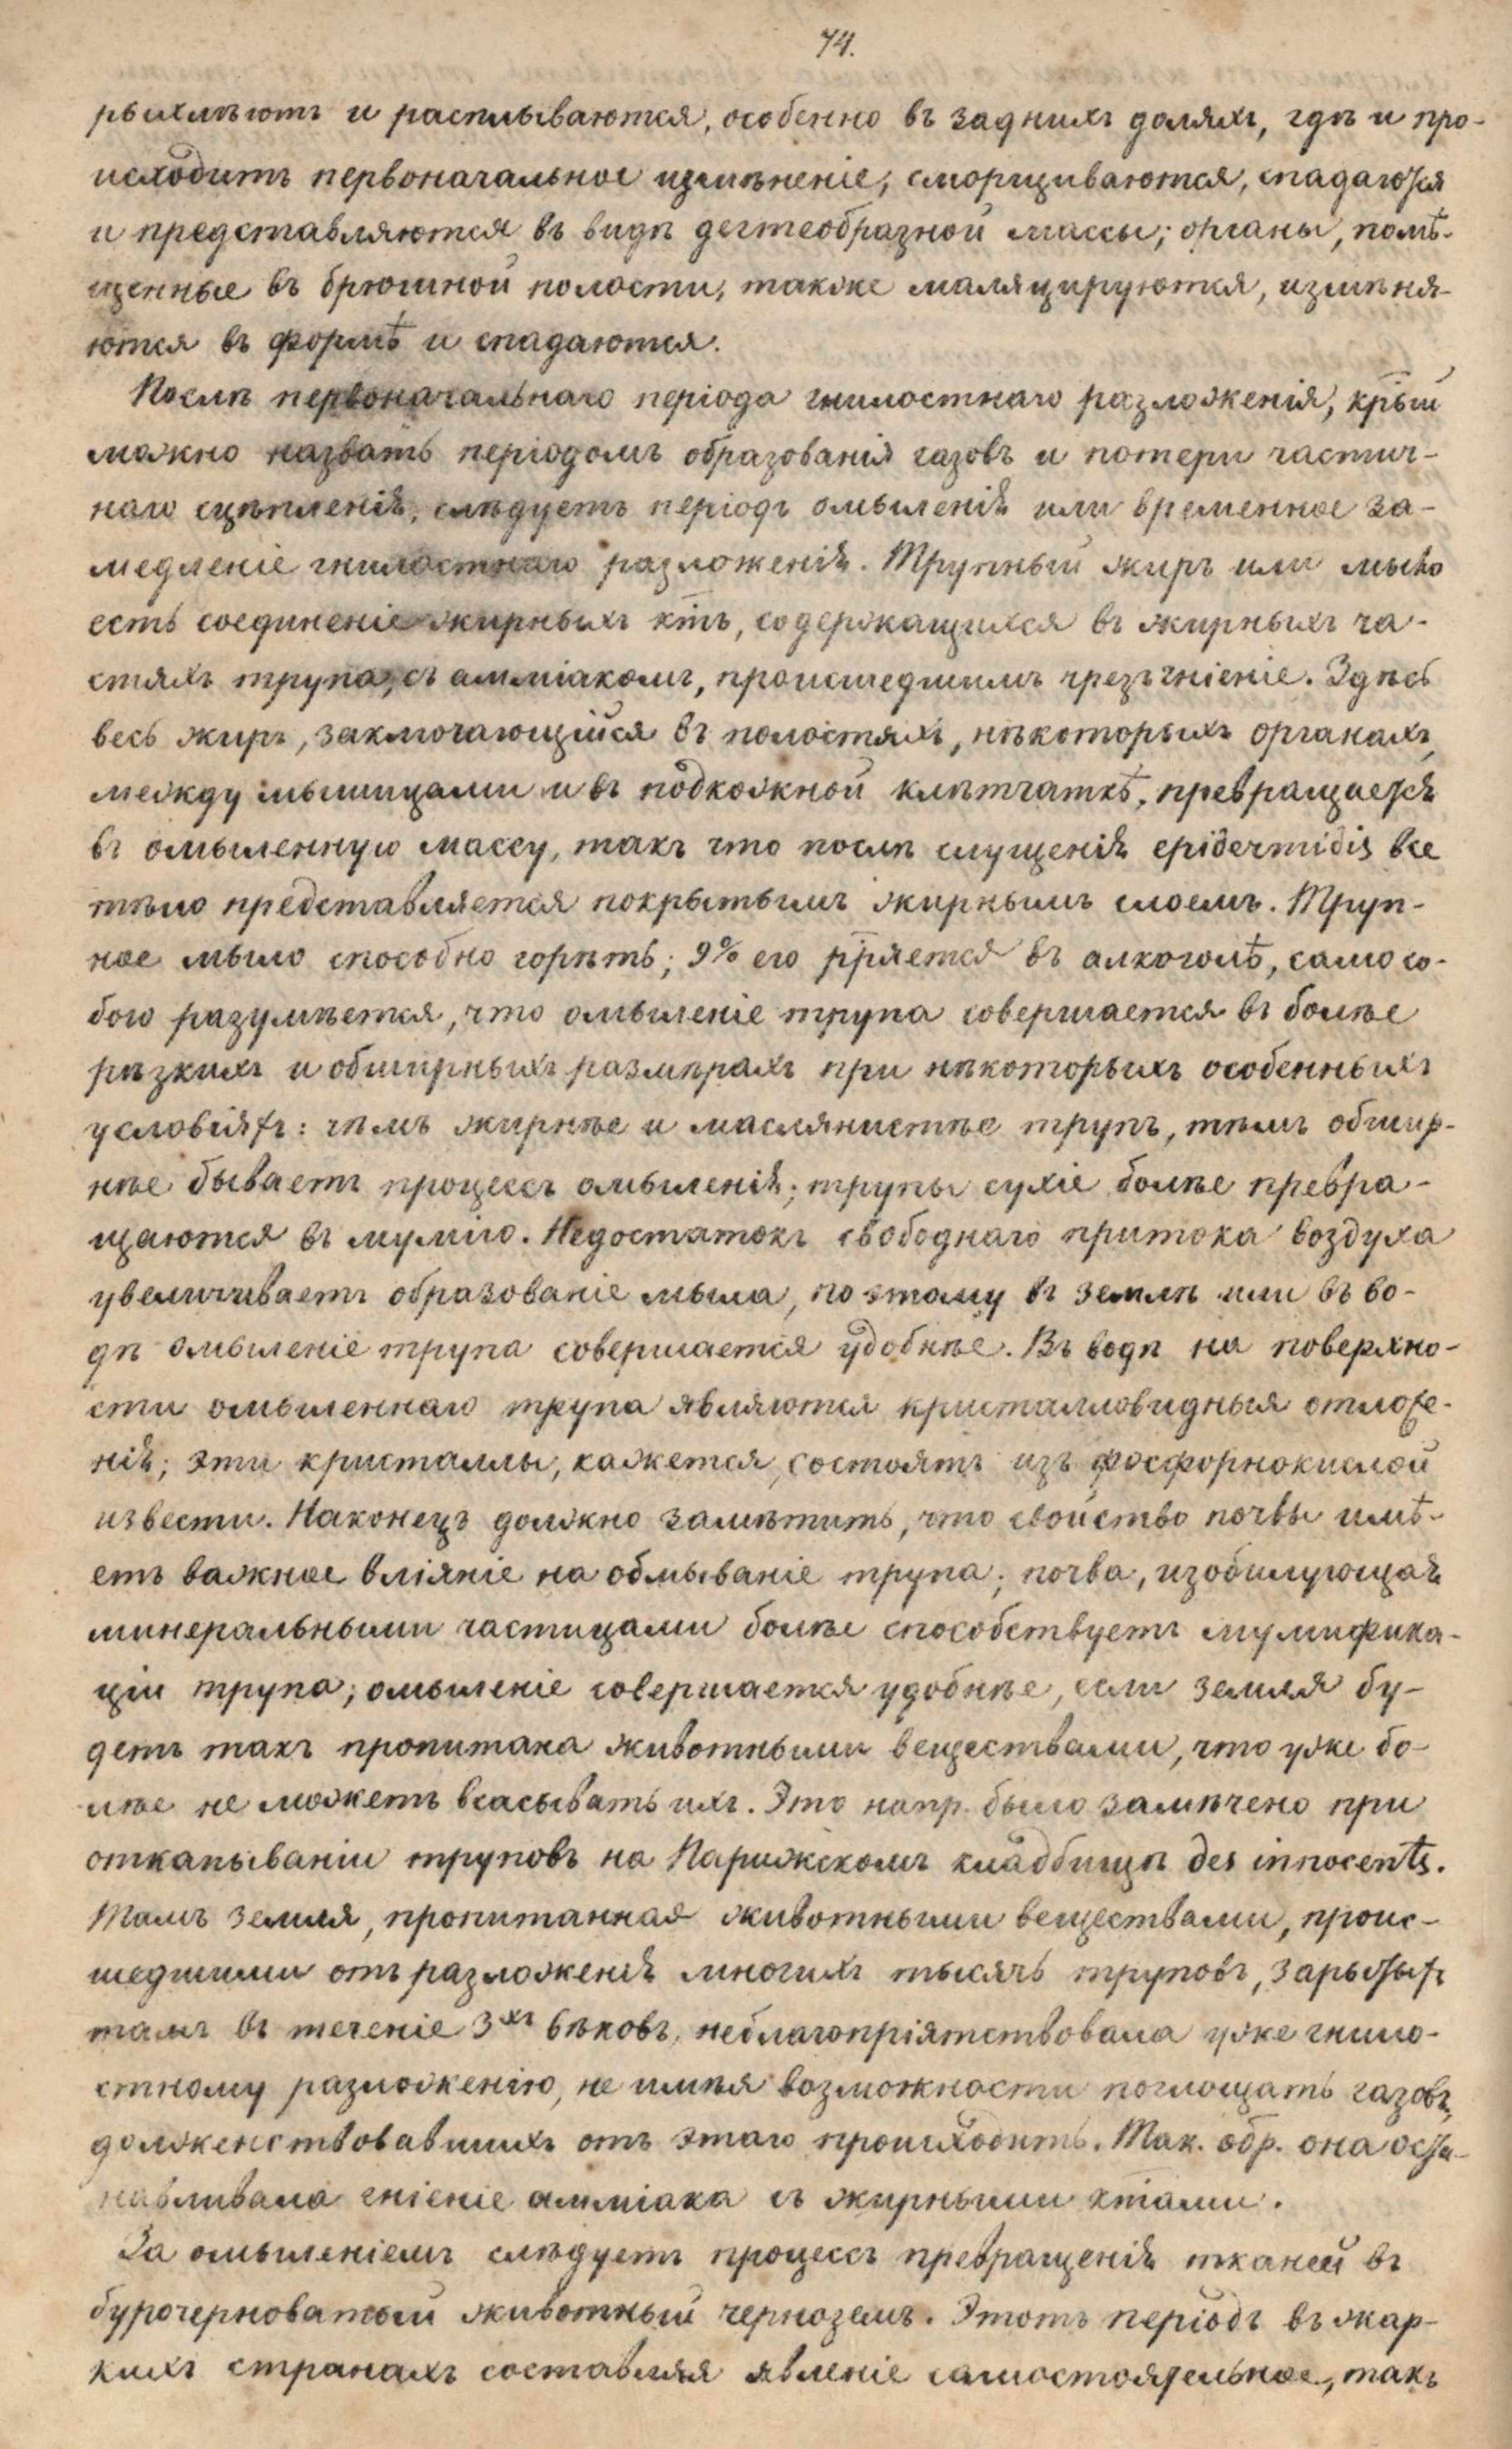 74.
рыхлѣютъ и расплываются, особенно въ заднихъ доляхъ, гдѣ и про-
исходитъ первоначальное измѣненіе, сморщиваются, спадаются
и представляются въ видѣ дегтеобразной массы; органы, помѣ-
щенные въ брюшной полости, также маляцируются, измѣня-
ются въ формѣ и спадаются.
Послѣ первоначальнаго періода гнилостнаго разложенія, крый
можно назвать періодомъ образованія газовъ и потери частич-
наго сцѣпленія, слѣдуетъ періодъ омыленія или временное за-
медленіе гнилостнаго разложенія. Трупный жиръ или мыло
есть соединеніе жирныхъ ктъ, содержащихся въ жирныхъ ча-
стяхъ трупа, съ амміакомъ, происшедшимъ чрезъ гніеніе. Здѣсь
весь жиръ, заключающійся въ полостяхъ, нѣкоторыхъ органахъ,
между мышицами и въ подкожной клѣтчаткѣ, превращается
въ омыленную массу, такъ что послѣ слущенія epidermidis все
тѣло представляется покрытымъ жирнымъ слоемъ. Труп-
ное мыло способно горѣть; 9% его рряется въ алкоголѣ, само со-
бою разумѣется, что омыленіе трупа совершается въ болѣе
рѣзкихъ и обширныхъ размѣрахъ при нѣкоторыхъ особенныхъ
условіяхъ: чѣмъ жирнѣе и маслянистѣе трупъ, тѣмъ обшир-
нѣе бываетъ процессъ омыленія; трупы сухіе болѣе превра-
щаются въ мумію. Недостатокъ свободнаго притока воздуха
увеличиваетъ образованіе мыла, по этому въ землѣ или въ во-
дѣ омыленіе трупа совершается удобнѣе. Въ водѣ на поверхно-
сти омыленнаго трупа являются кристалловидныя отложе-
нія; эти кристаллы, кажется, состоятъ изъ фосфорнокислой
извести. Наконецъ должно замѣтить, что свойство почвы имѣ-
етъ важное вліяніе на обмываніе трупа; почва, изобилующая
минеральными частицами болѣе способствуетъ мумифика-
ціи трупа; омыленіе совершается удобнѣе, если земля бу-
детъ такъ пропитана животными веществами, что уже бо-
лѣе не можетъ всасывать ихъ. Это напр. было замѣчено при
откапываніи труповъ на Парижскомъ кладбищѣ des innocents.
Тамъ земля, пропитанная животными веществами, проис-
шедшими отъ разложенія многихъ тысячъ труповъ, зарытыхъ
тамъ въ теченіе 3хъ вѣковъ, неблагопріятствовала уже гнило-
стному разложенію, не имѣя возможности поглощать газовъ,
долженствовавшихъ отъ этаго происходить. Так. обр. она оста-
навливала гніеніе амміака съ жирными ктами.
За омыленіемъ слѣдуетъ процессъ превращенія тканей въ
бурочерноватый животный черноземъ. Этотъ періодъ въ жар-
кихъ странахъ составляя явленіе самостоятельное, такъ